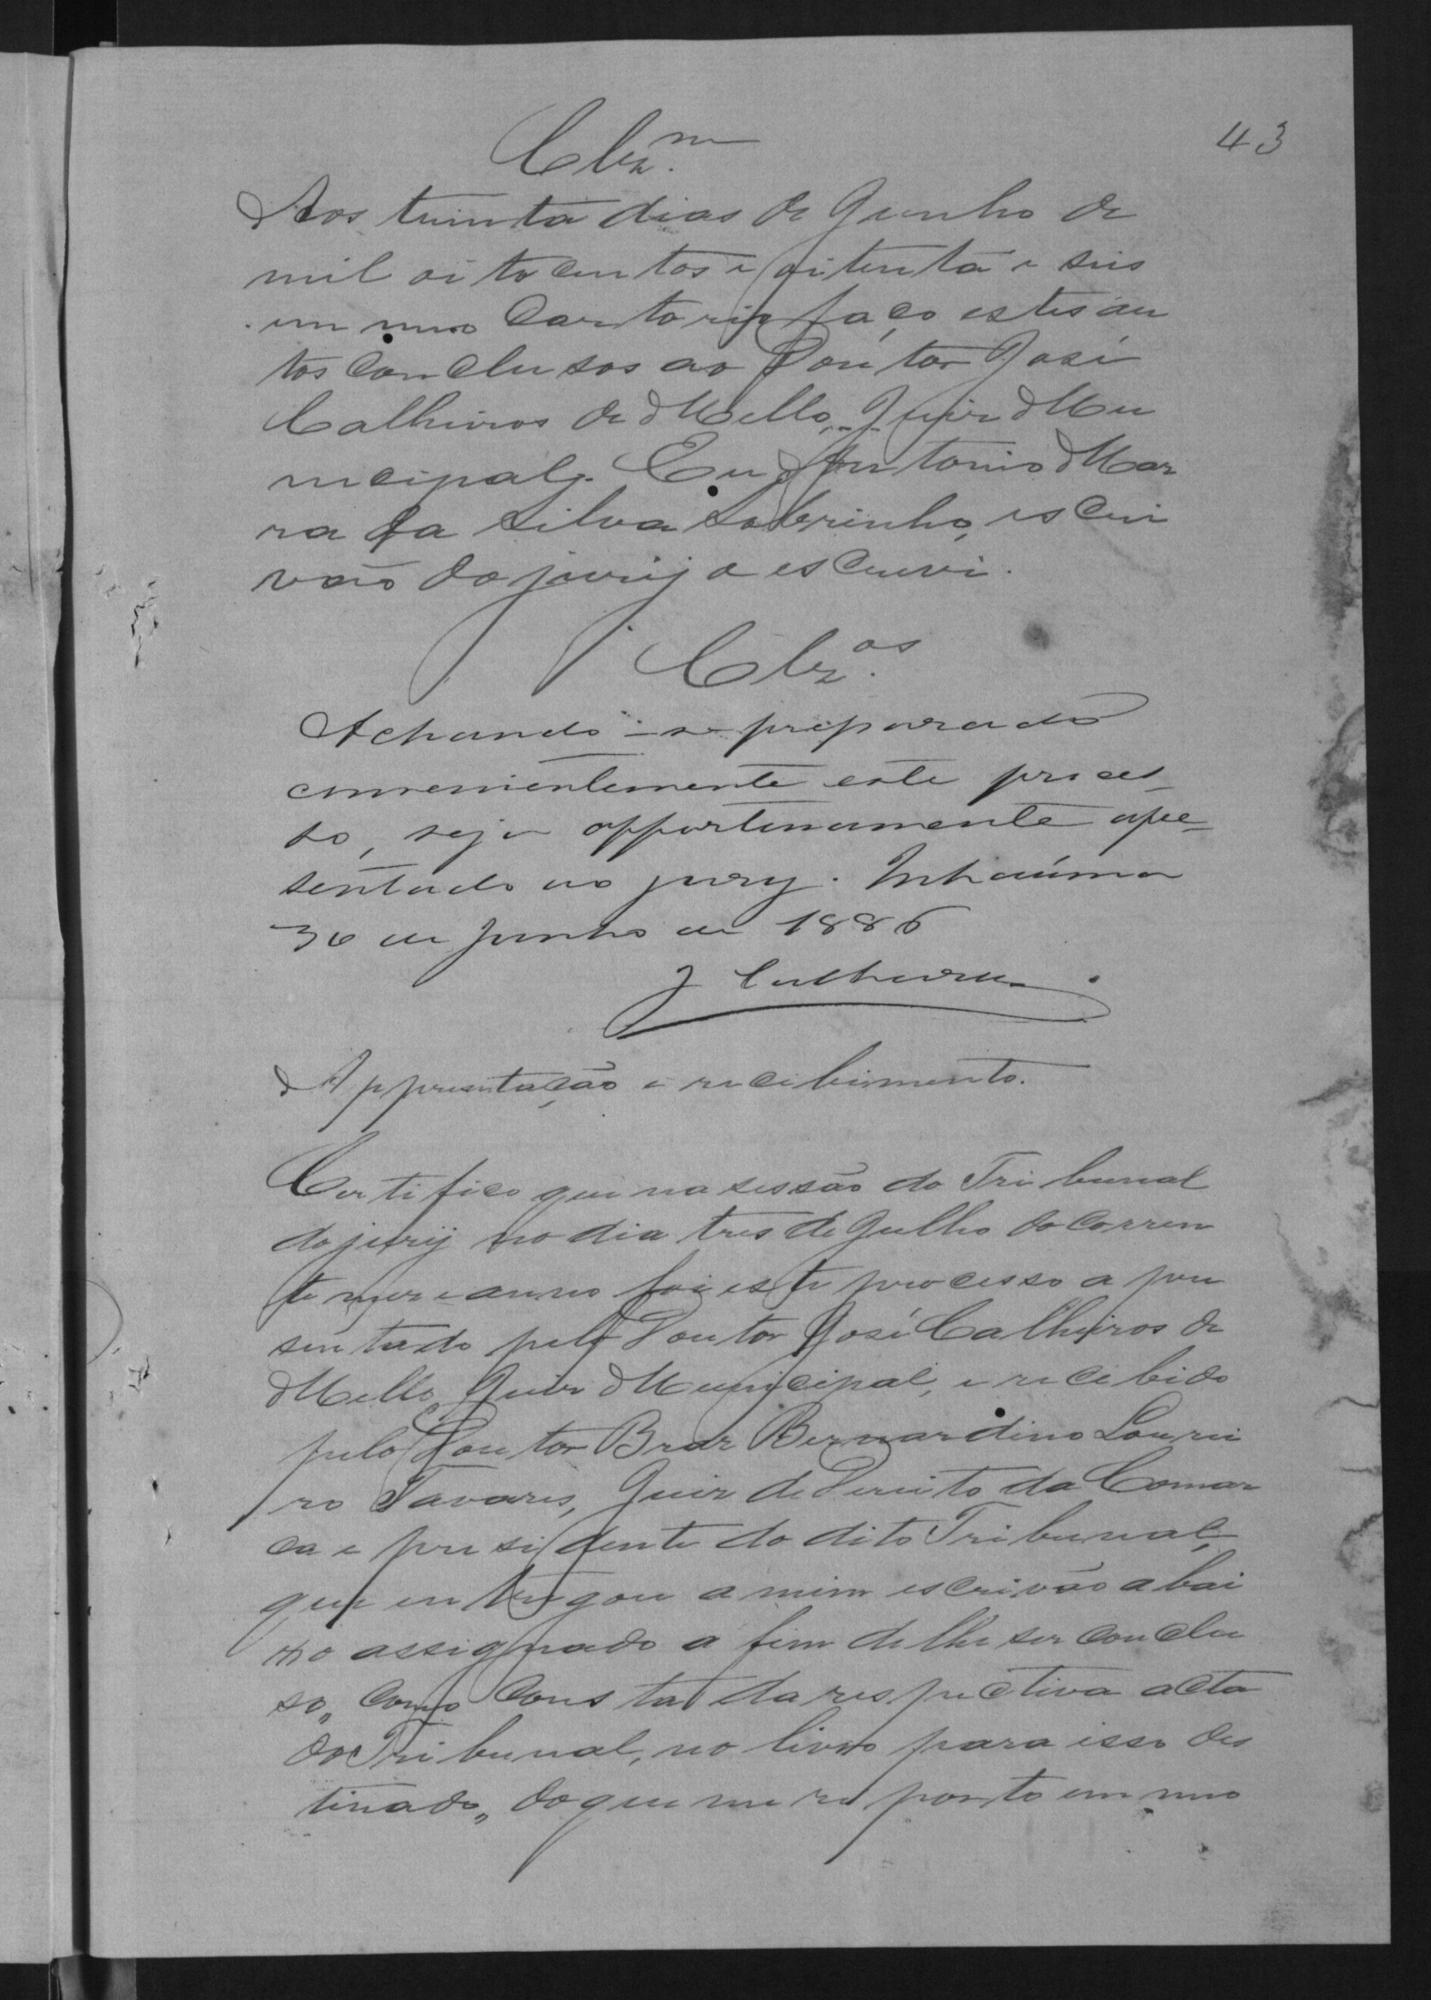 43
Clzm.
Aos trinta dias de Junho de
mil oito centos e oitenta e seis
em meu Cartorio faço estes au
tos conclusos ao Doutor José
Calheiros de Mello, Juiz Mu
nicipal. Eu, Antonio Mar
ra da Silva Sobrinho, escri
vão do jury o escrevi.
Clzos.
Achando-se preparado
convenientemente este proces-
so, seja opportunamente apre-
sentado ao jury. Inhaúma
30 de Junho de 1886
J Calheiros.
Appresentação e recebimento.
Certifico que na sessão do Tribunal
do jury no dia tres de Julho do corren
te mez e anno foi este processo apre
sentado pelo Doutor José Calheiros de
Mello Juiz Municipal, e recebido
pelo Doutor Braz Bernardino Lourei
ro Tavares, Juiz de Direito da Comar
ca e presidente do dito Tribunal,
que entregou a mim escrivão abai
xo assignado a fim de lhe ser conclu
so, como consta da respectiva acta
do Tribunal, no livro para isso des
tinado, do que me reporto em meu